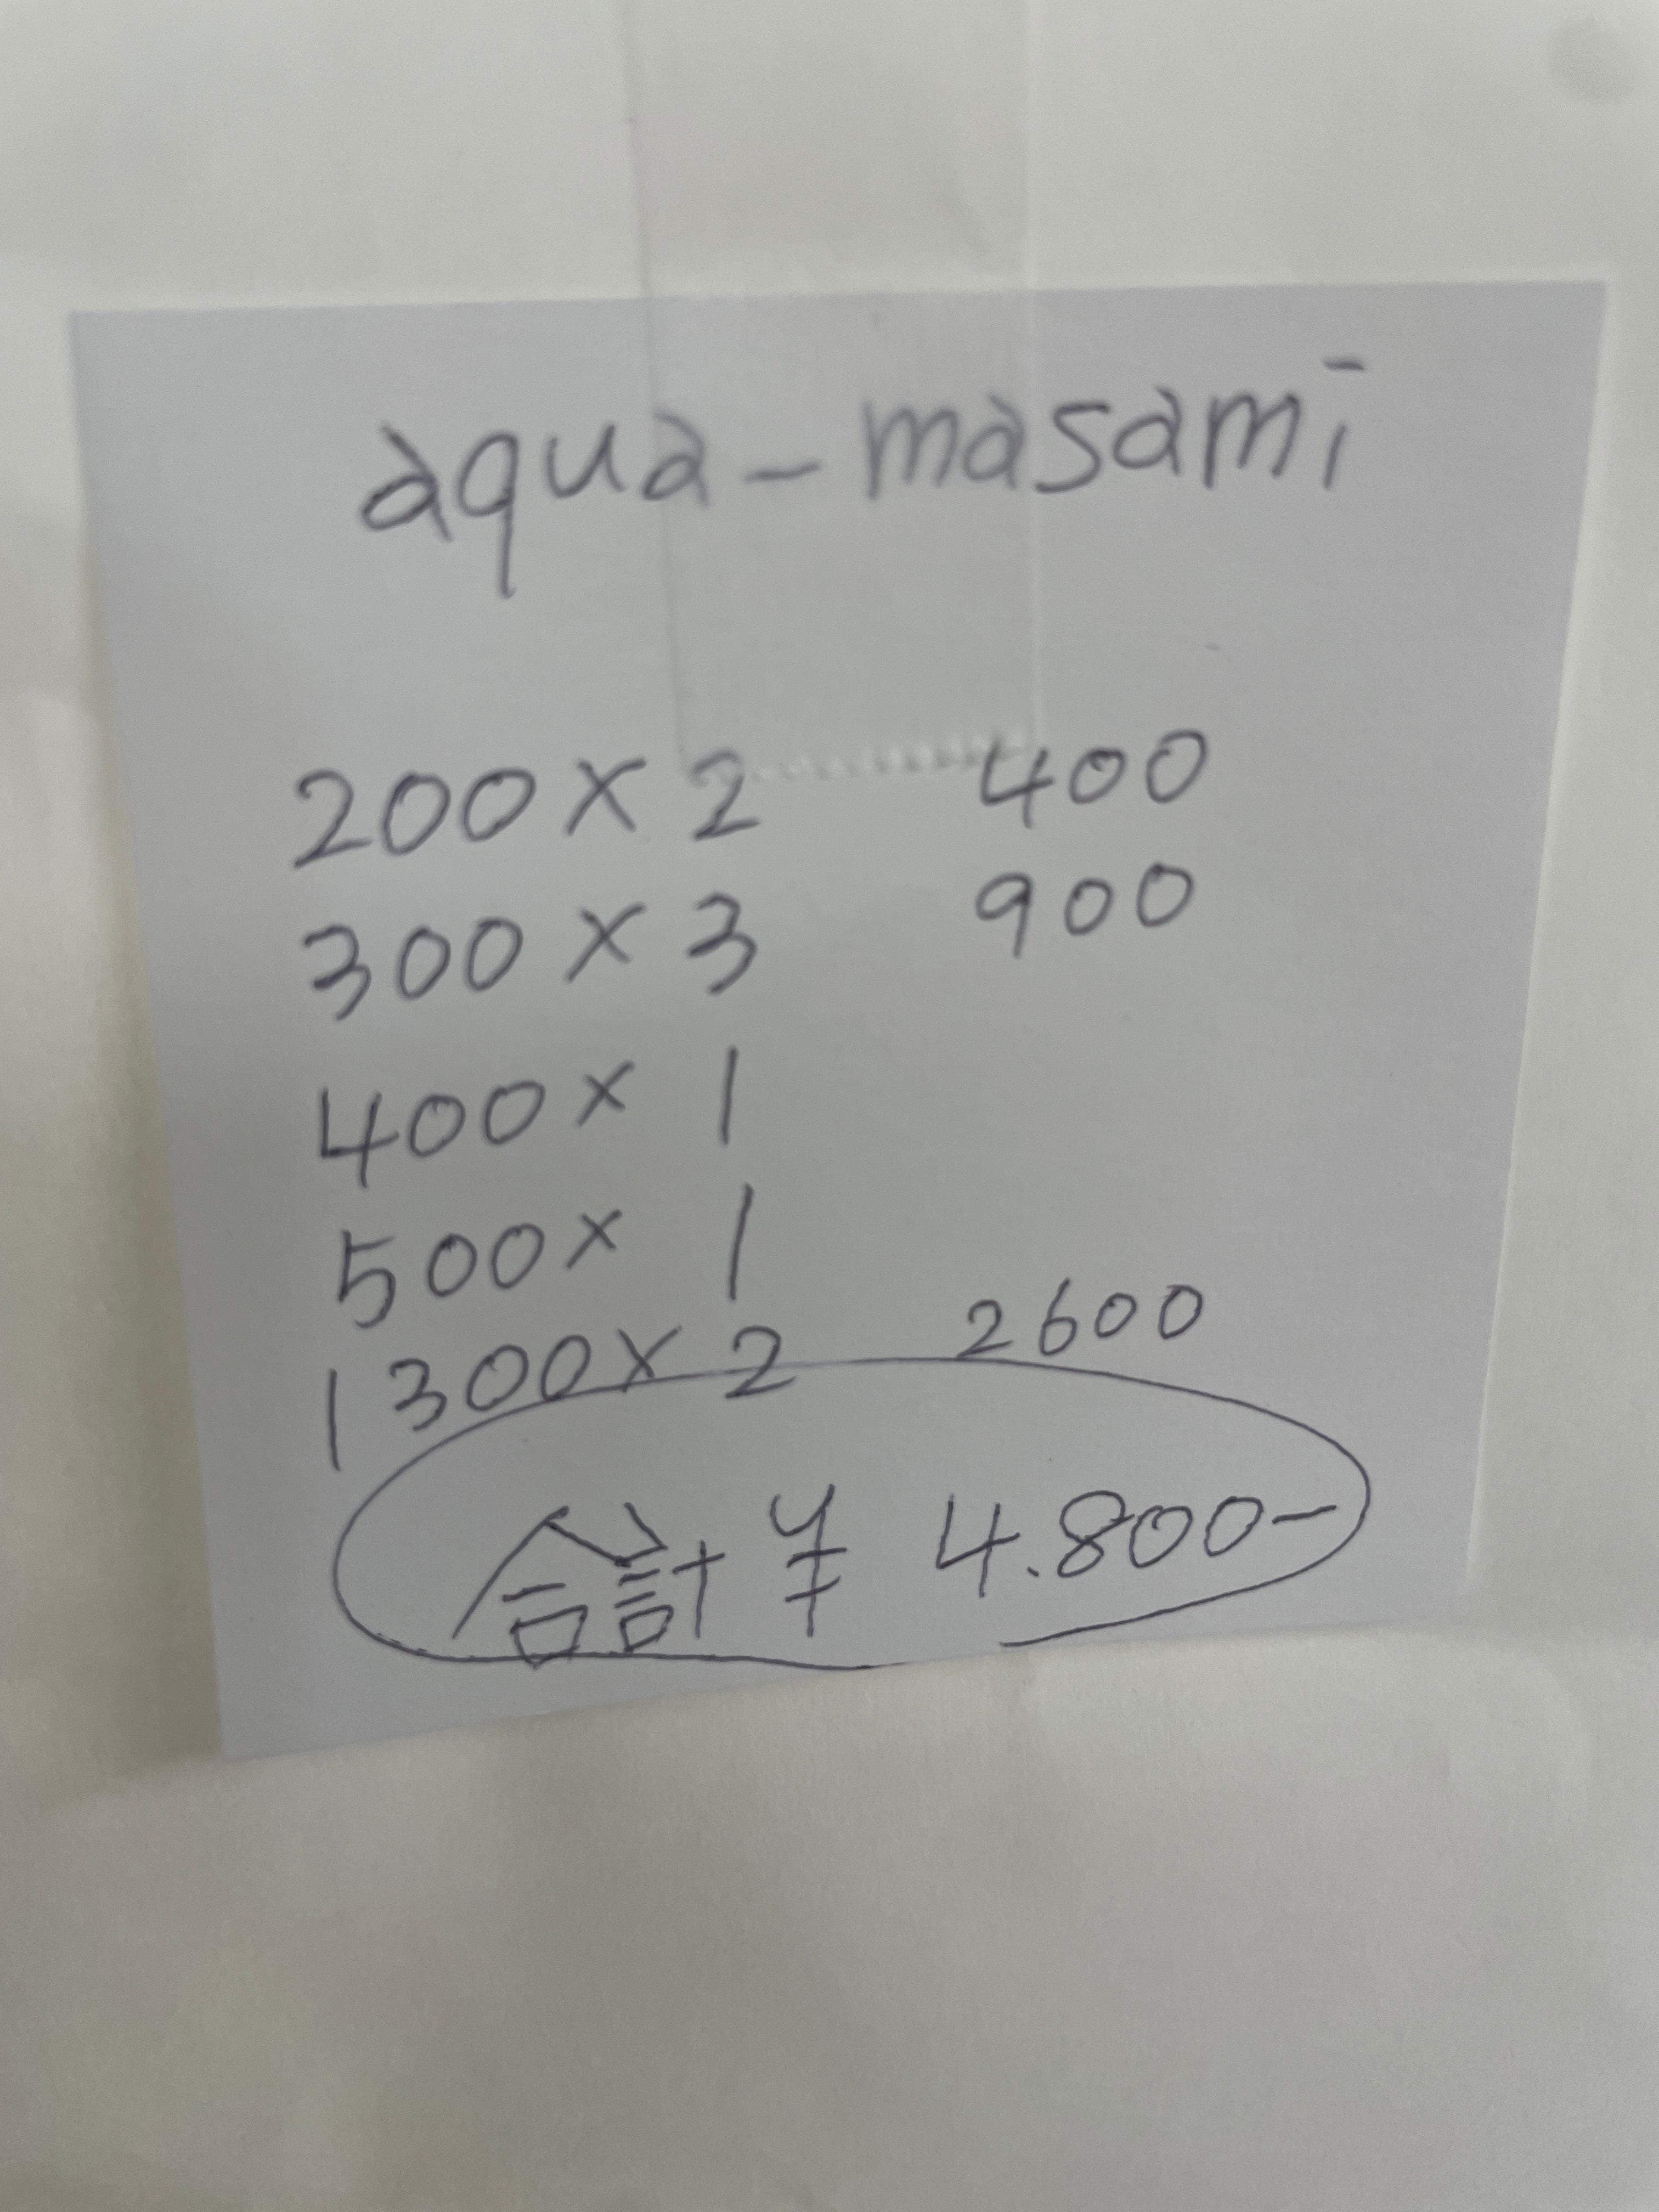 aqua-masami
200×2 400
300×3 900
400×1
500×1
1300×2 2600
合計¥4.800-